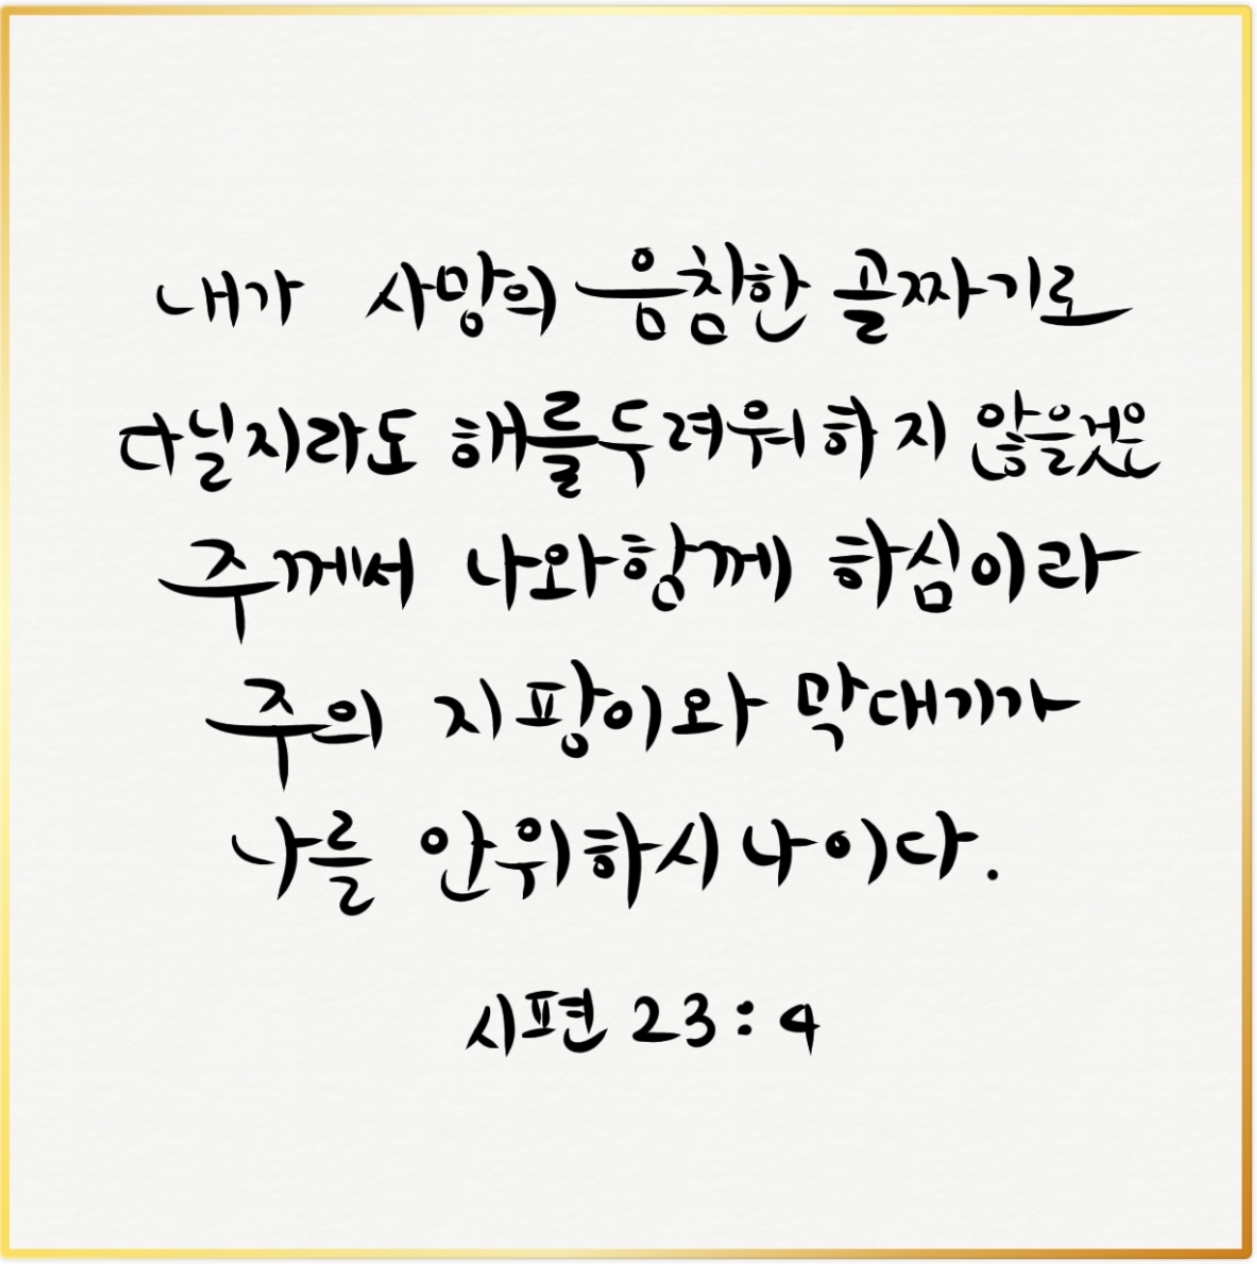 내가 사망의 음침한 골짜기로
다닐지라도 해를 두려워하지 않을것은
주께서 나와함께 하심이라
주의 지팡이와 막대기가
나를 안위하시나이다.
시편 23:4